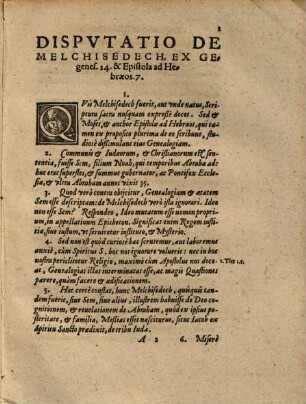 DISPVTATIO DE
MELCHISEDECH. EX GE-
genes. 14. & Epistola ad He-
bræos. 7.
1.
QVis Melchisedech fuerit, aut unde natus, Scri-
ptura sacra nusquam expresse docet. Sed &
Moses, & author Epistolæ ad Hebræos, qui ta-
men ex proposito plurima de eo scribunt, stu-
diosè dissimulant eius Genealogiam.
2. Communis & Iudæorum, & Christianorum est sen-
tentia, fuisse Sem, filium Noah, qui temporibus Abrahæ ad-
huc erat superstes, & summus gubernator, ac Pontifex Ecclesi-
æ, & ultra Abraham annos vixit 35.
3. Quod verò contra obijcitur, Genealogiam & ætatem
Sem esse descriptam: de Melchisedech verò ista ignorari. Ideo
non esse Sem. Respondeo, Ideo mutatum esse nomen propri-
um, in appellativum Epitheton. Significat enim Regem iusti-
tiæ, sive iustum, ut serviretur instituto, & Mysterio.
4. Sed non est quòd curiosè hæc scrutemur, aut laboremus
anxiè, cùm Spiritus S. hoc nos ignorare voluerit: nec in hoc
nostra periclitetur Religio, maximè cùm Apostolus nos doce-
at, Genealogias illas interminatas esse, ac magis Quæstiones
parere, quàm sacere & ædificationem.
1. Tim. 1. 4.
5. Hoc certò constat, hunc Melchisedech, quisquis tan-
dem fuerit, sive Sem, sive alius, illustrem habuisse de Deo cog-
nitionem, & revelationem de Abraham, quòd ex ipsius po-
steritate, & familia, Messias esset nasciturus, sicut Iacob ex
Spiritu Sancto prædixit, de tribu Iuda.
A 2 6. Miserè